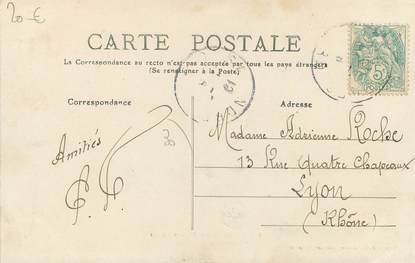 20 €
CARTE POSTALE
La Correspondance au recto n'est pas acceptée par tous les pays étrangers
(Se renseigner à la Poste)
Correspondance
Adresse
Amitiés
Madame Adrienne Roche
13 Rue Quatre Chapeaux
Lyon
(Rhône)